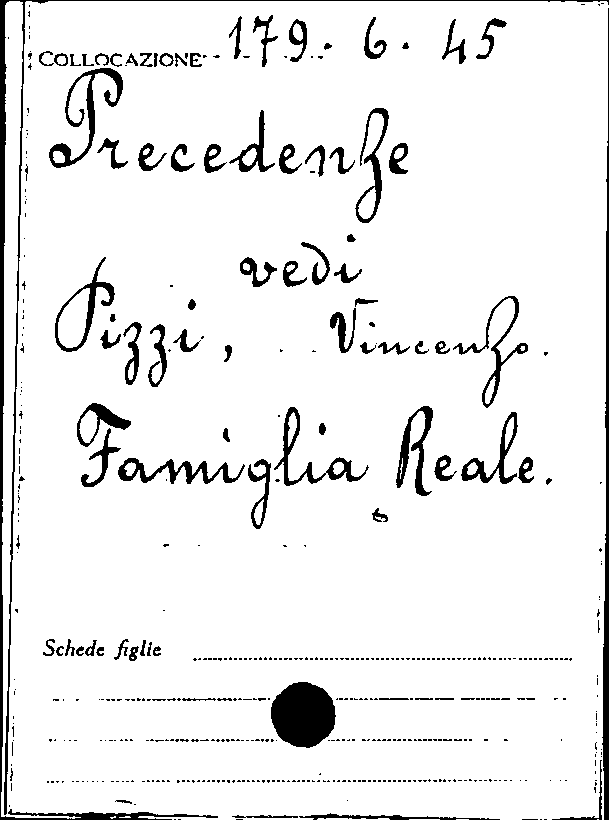 COLLOCAZIONE 179. 6. 45
Precedenze
vedi
Pizzi, Vincenzo.
Famiglia Reale.
Schede figlie